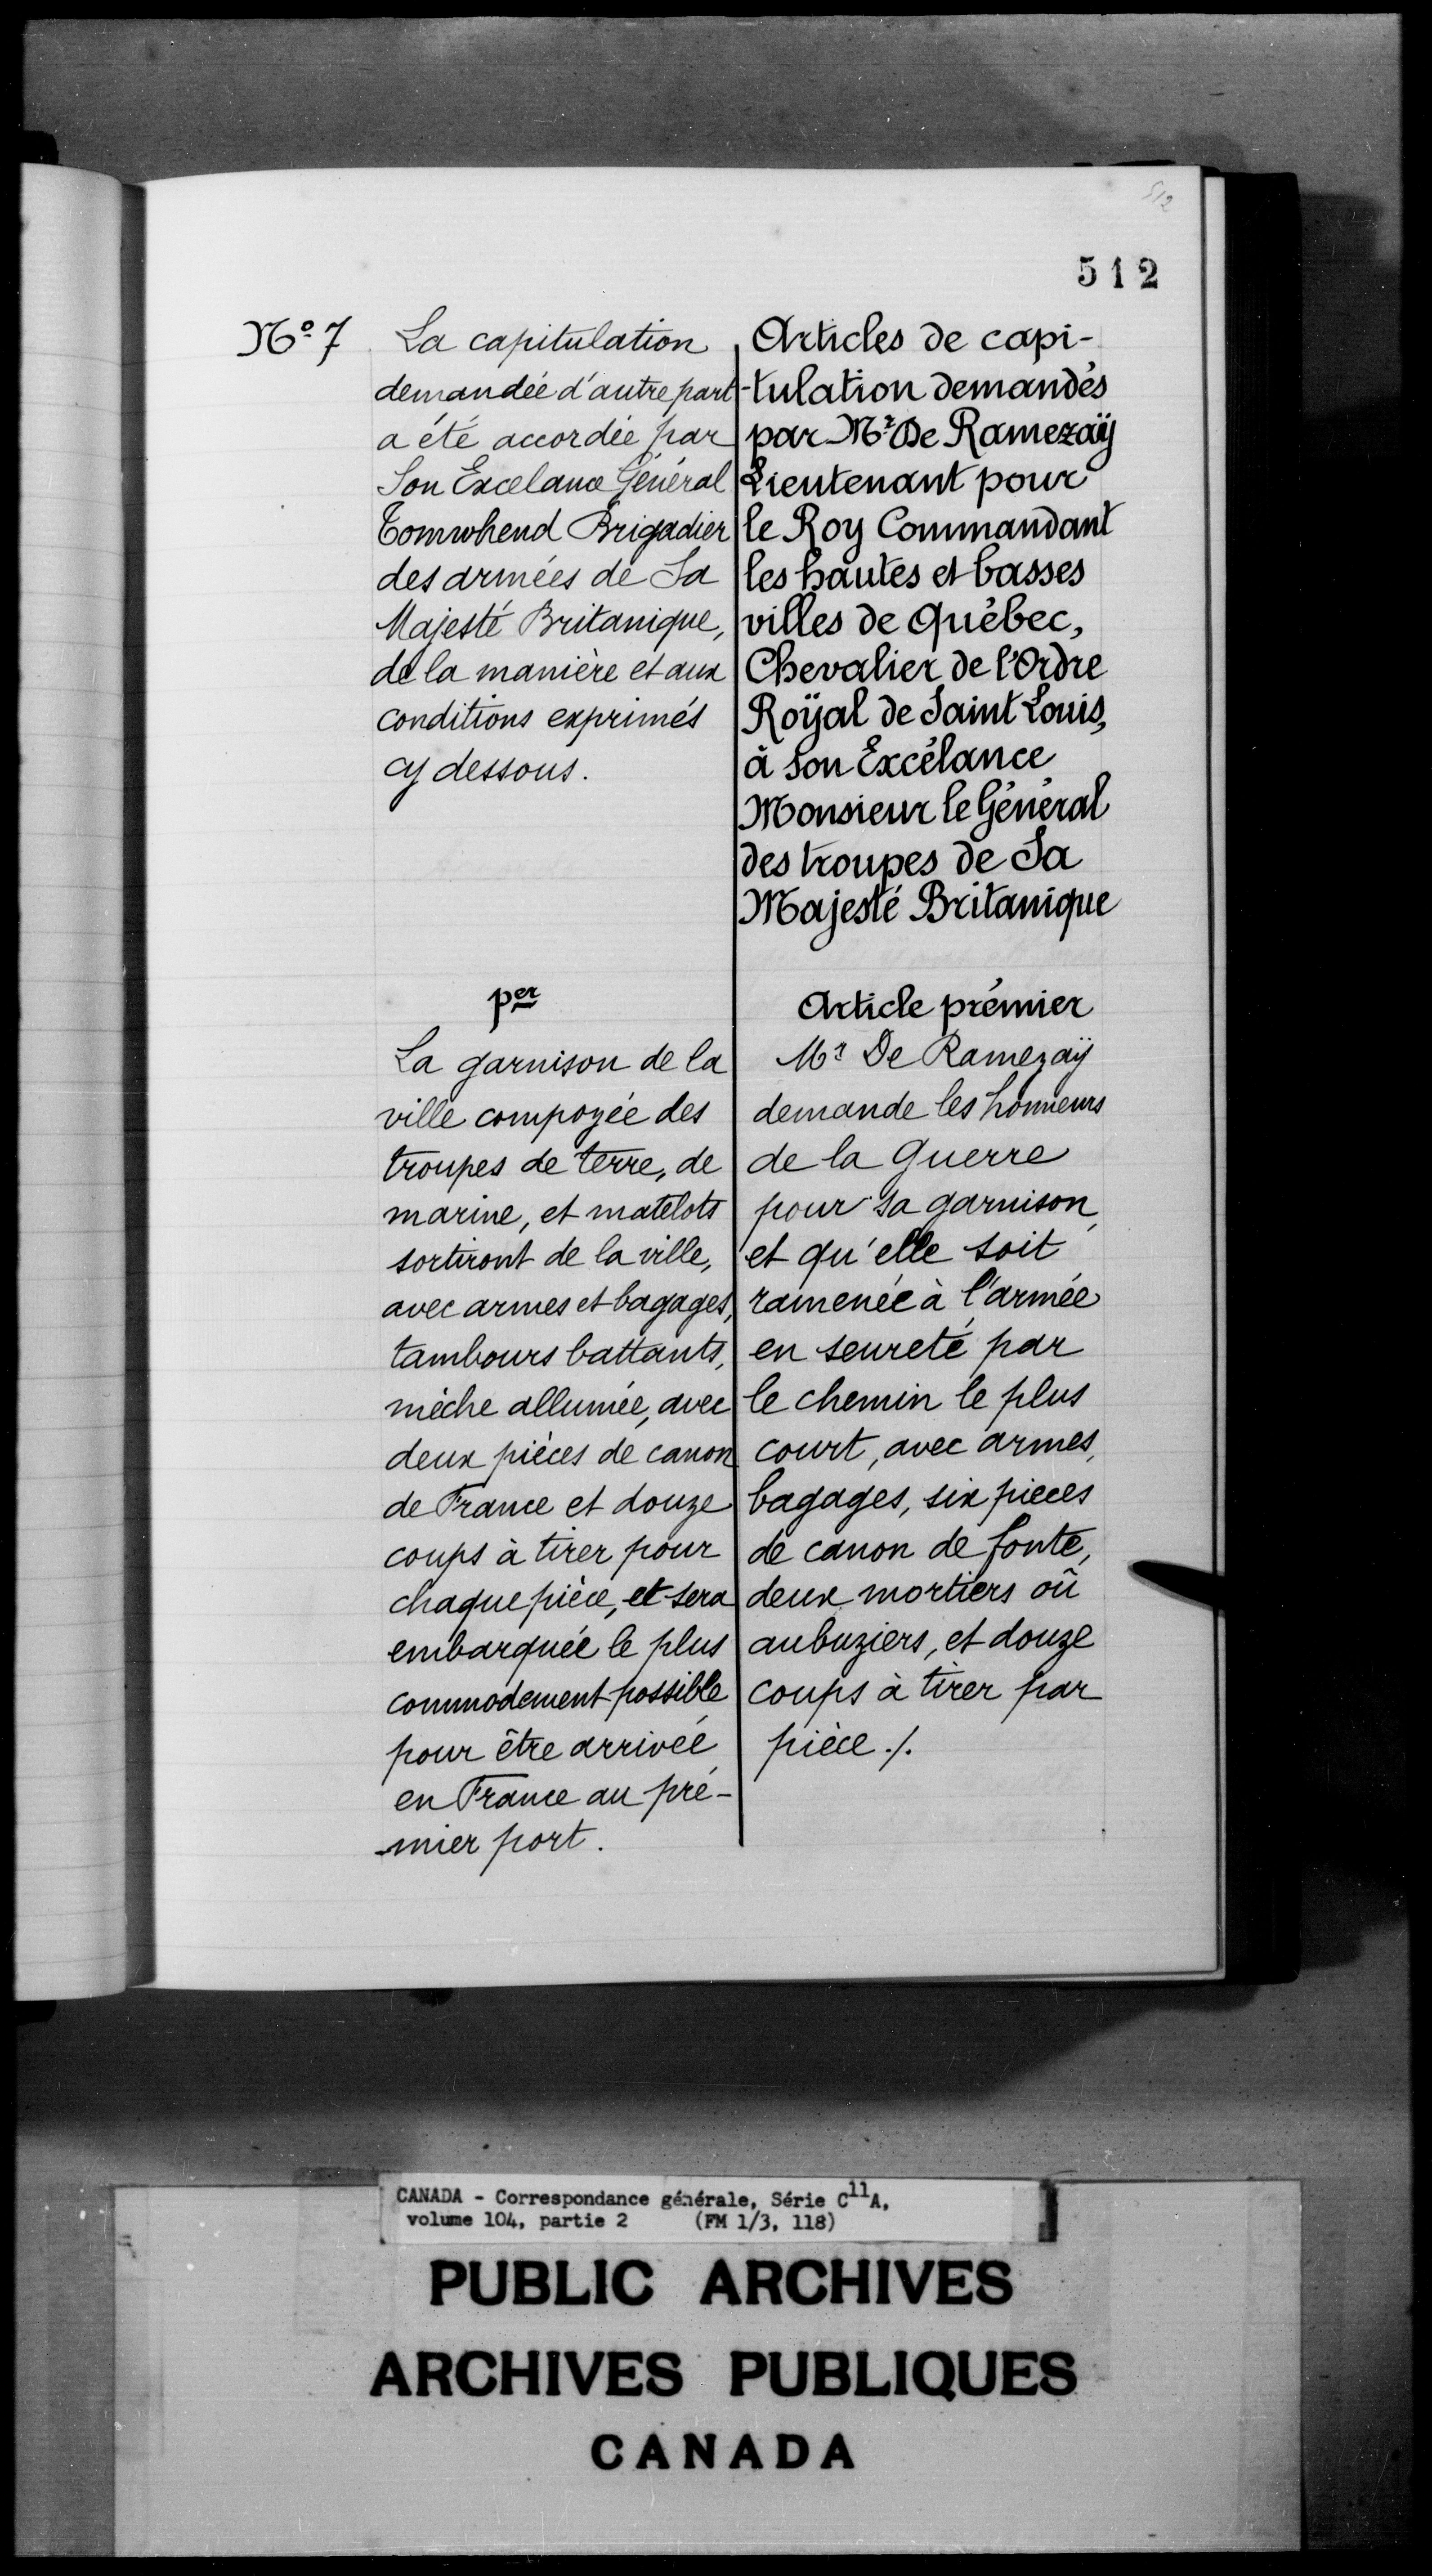 512
512
No 7
La capitulation
demandée d'autre part
a été accordée par
Son Excelance Général
Tomwhend Brigadier
des armées de Sa
Majesté Britanique,
de la manière et aux
conditions exprimés
cy dessous.
Articles de capi-
-tulation demandés
par Mr De Ramezaÿ
Lieutenant pour
le Roy Commandant
les hautes et basses
villes de Québec,
Chevalier de l'Ordre
Roÿal de Saint Louis,
à Son Excélance
Monsieur le Général
des troupes de Sa
Majesté Britanique
per
La garnison de la
ville compozée des
troupes de terre, de
marine, et matelots
sortiront de la ville,
avec armes et bagages,
tambours battants,
mèche allumée, avec
deux pièces de canon
de France et douze
coups à tirer pour
chaque pièce, et sera
embarquée le plus
commodement possible
pour être arrivée
en France au pré-
-mier port.
Article prémier
Mr De Ramezaÿ
demande les honneurs
de la Guerre
pour sa garnison,
et qu'elle soit
ramenée à l'armée
en seureté par
le chemin le plus
court, avec armes,
bagages, six pieces
de canon de fonte,
deux mortiers oû
aubuziers, et douze
coups à tirer par
pièce ./.
CANADA - Correspondance générale, Série C11A,
volume 104, partie 2 (FM 1/3, 118)
PUBLIC ARCHIVES
ARCHIVES PUBLIQUES
CANADA